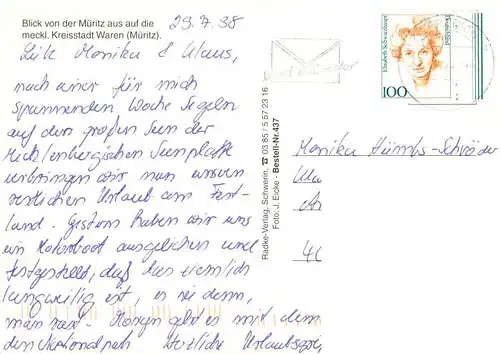 Blick von der Müritz aus auf die
meckl. Kreisstadt Waren (Müritz).
29.7.98
Monika & Klaus,
nach einer für mich
spannenden Woche Segeln
auf den großen Seen der
Mecklenbergischen Seenplatte
verbringen wir nun unseren
restlichen Urlaub am Fest-
land. Gestern haben wir uns
ein Motorboot ausgeliehen und
festgestellt, daß das ziemlich
langweilig ist, es sei denn,
man rast. Morgen geht es mit dem
den Nationalpark Herzliche Urlaubsgrüße
Radke-Verlag, Schwerin, ☎ 03 85 / 5 57 23 16
Foto: J. Eicke - Bestell-Nr.437
Elisabeth Schwarzhaupt
Deutschland
100
Monika Hümbs-Schröder